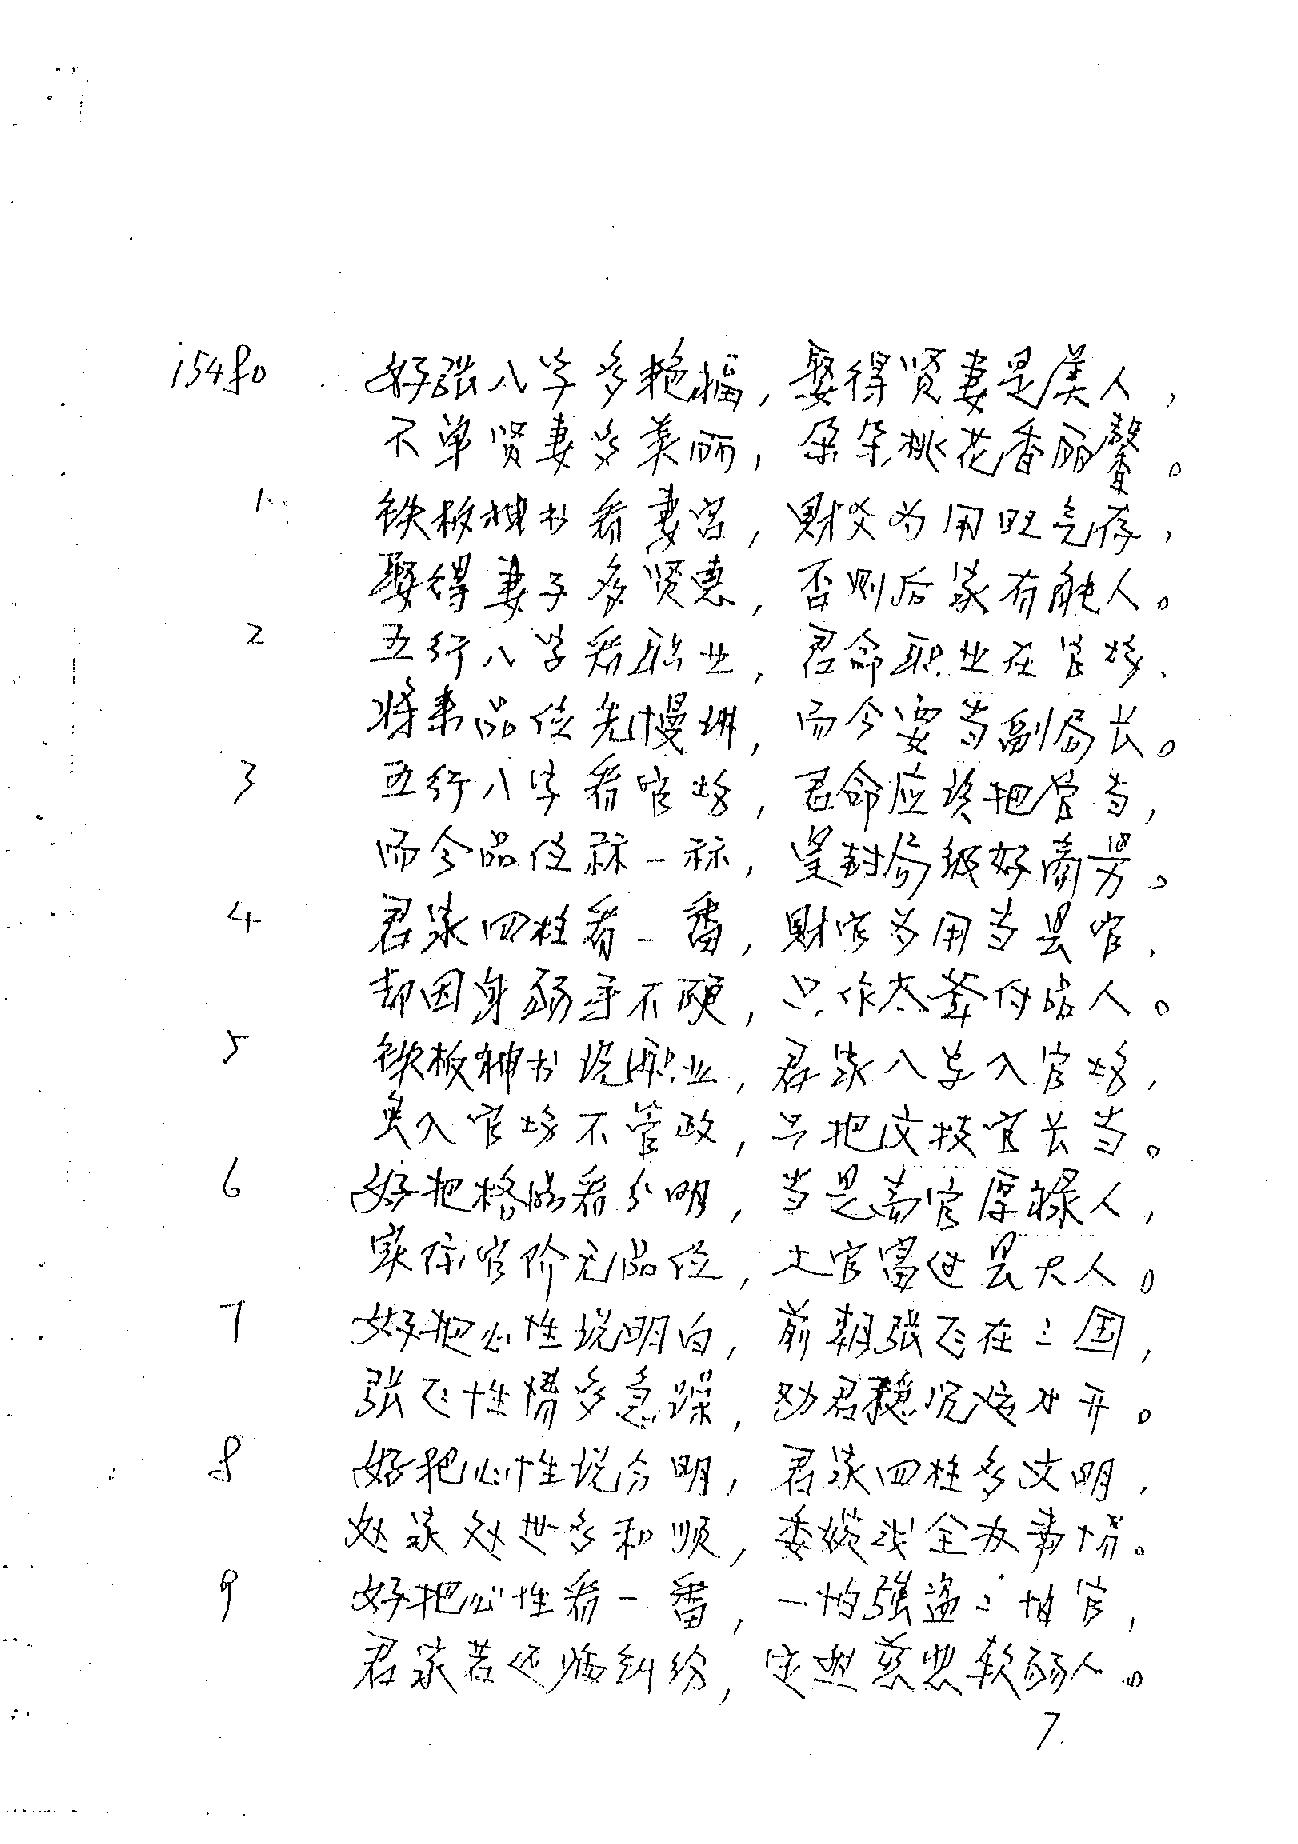 15480 好张八字多艳福，娶得贤妻是美人，
不单贤妻多美丽，朵朵桃花香丽馨。
1 铁板神书看妻宫，财爻为用旺气存，
娶得妻子多贤惠，否则后家有能人。
2 五行八字看职业，君命职业在官场，
将来品位先慢讲，而今要当副局长。
3 五行八字看官场，君命应该把官当，
而今品位称一称，皇封局级好商男。
4 君家四柱看一番，财官为用当县官，
却因身弱手不硬，只作太爷付品人。
5 铁板神书说职业，君家八字入官场，
虽入官场不管政，只把文技官长当。
6 好把格局看分明，当是高官厚禄人，
实际官阶无品位，土官富过县大人。
7 好把心性说明白，前朝张飞在三国，
张飞性情多急躁，劝君稳沉焰才开。
8 好把心性说分明，君家四柱多文明，
处家处世多和顺，委婉成全办事情。
9 好把心性看一番，一怕强盗二怕官，
君家若还临纠纷，定型慈悲软弱人。
7